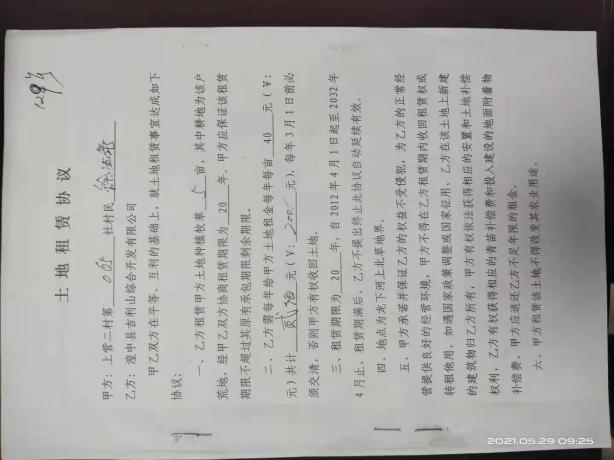 土 地 租 赁 协 议
甲方：上营二村第 005 社村民
乙方：湟中县吉利山综合开发有限公司
甲乙双方在平等、互利的基础上，就土地租赁事宜达成如下
协议：
一、乙方租赁甲方土地种植牧草 5 亩，其中耕地为该户
荒地，经甲乙双方协商租赁期限为 20 年，甲方应保证该租赁
期限不超过其原有承包期限剩余期限。
二、乙方需每年给甲方土地租金每年每亩 40 元（￥：
元）共计 贰佰 元（￥：200 元），每年3月1日前必
须交清，否则甲方有权收回土地。
三、租赁期限为 20 年，自2012年4月1日起至2032年
4月止，租赁期满后，乙方不提出终止此协议自动延续有效。
四、地点为龙下河上北草地界。
五、甲方承诺并保证乙方的权益不受侵犯，为乙方的正常经
营提供良好的经营环境，甲方不得在乙方租赁期内收回租赁权或
转租他用，如遇国家政策调整或国家征用，乙方在该土地上新建
的建筑物归乙方所有，甲方有权依法获得相应的安置和土地补偿
权利，乙方有权获得相应的青苗补偿费和投入建设的地面附着物
补偿费，甲方应退还乙方不足年限的租金。
六、甲方租赁该土地不得改变其农业用途。
2021.05.29 09:25